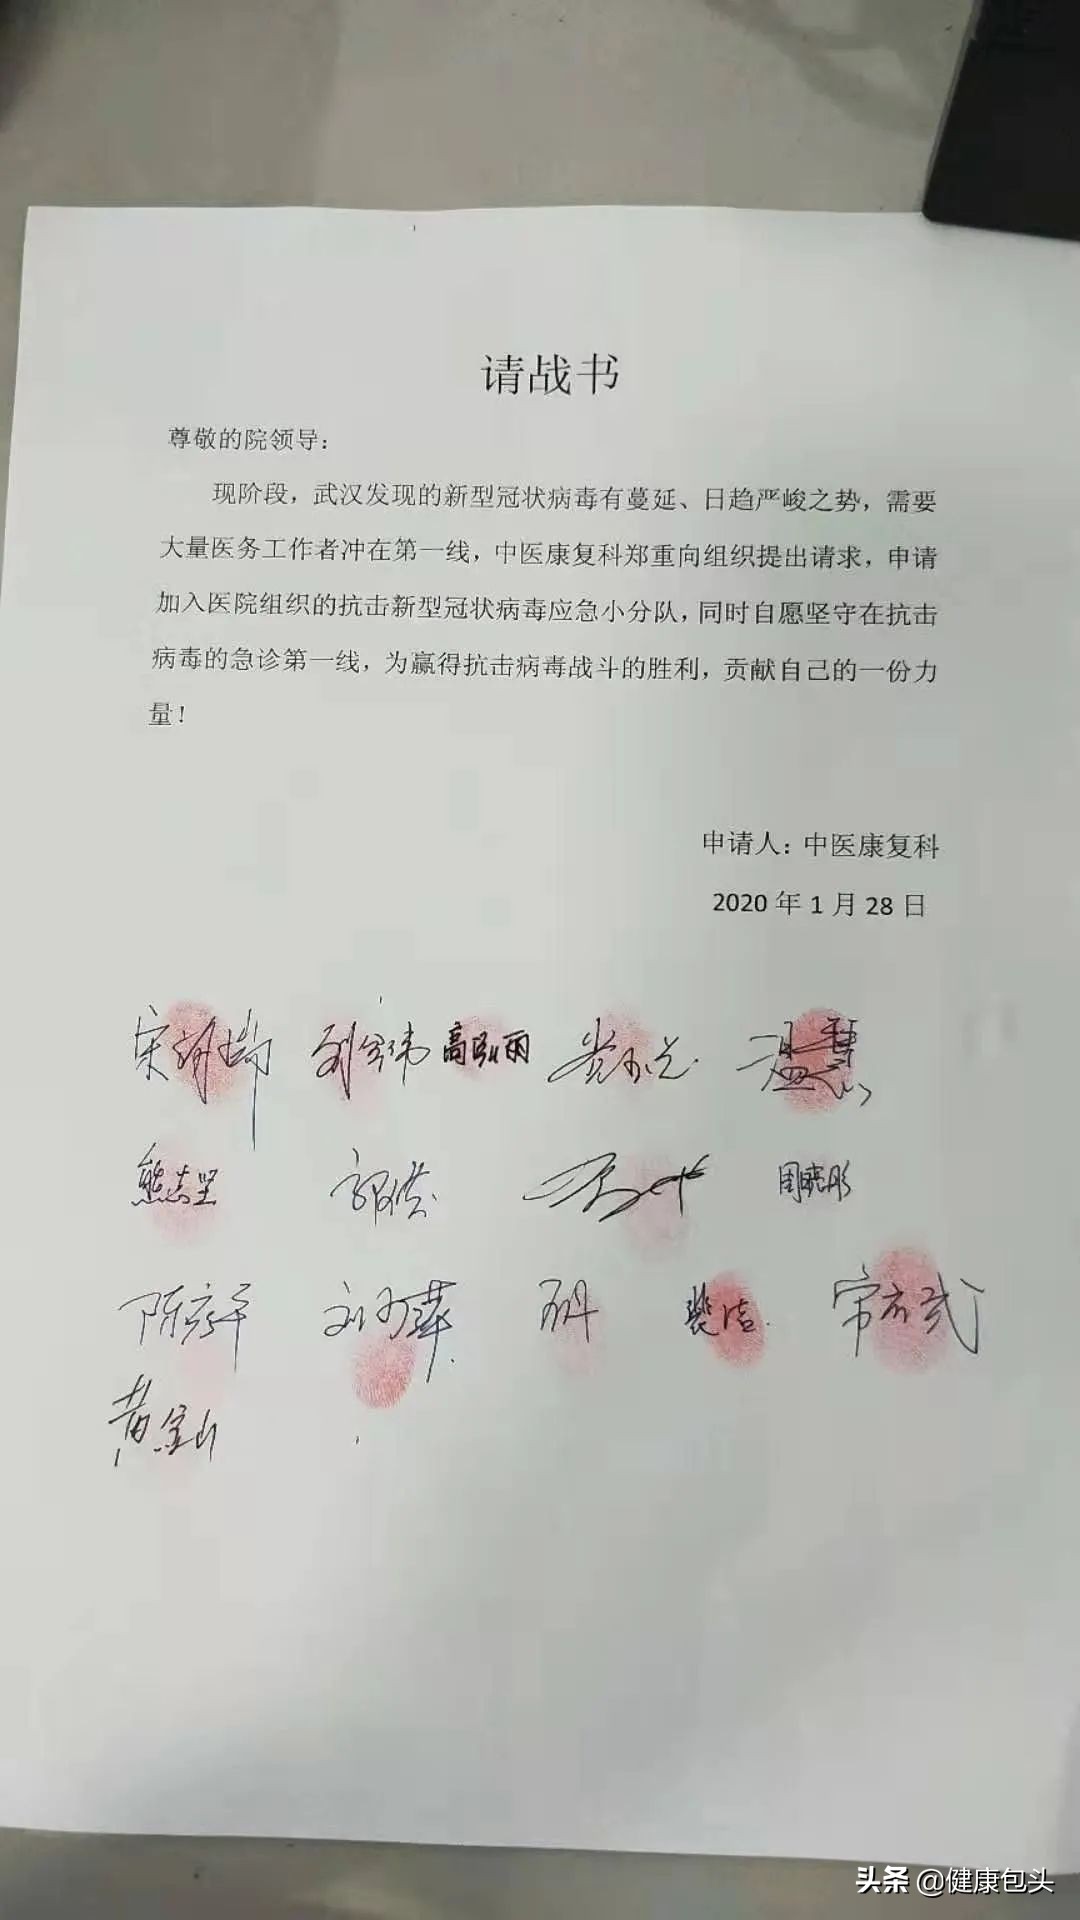 请战书
尊敬的院领导：
现阶段，武汉发现的新型冠状病毒有蔓延、日趋严峻之势，需要
大量医务工作者冲在第一线，中医康复科郑重向组织提出请求，申请
加入医院组织的抗击新型冠状病毒应急小分队，同时自愿坚守在抗击
病毒的急诊第一线，为赢得抗击病毒战斗的胜利，贡献自己的一份力
量！
申请人：中医康复科
2020 年 1 月 28 日
高
熊志坚 周晓彤
陈 刘 裴洁
黄金山
头条 @健康包头